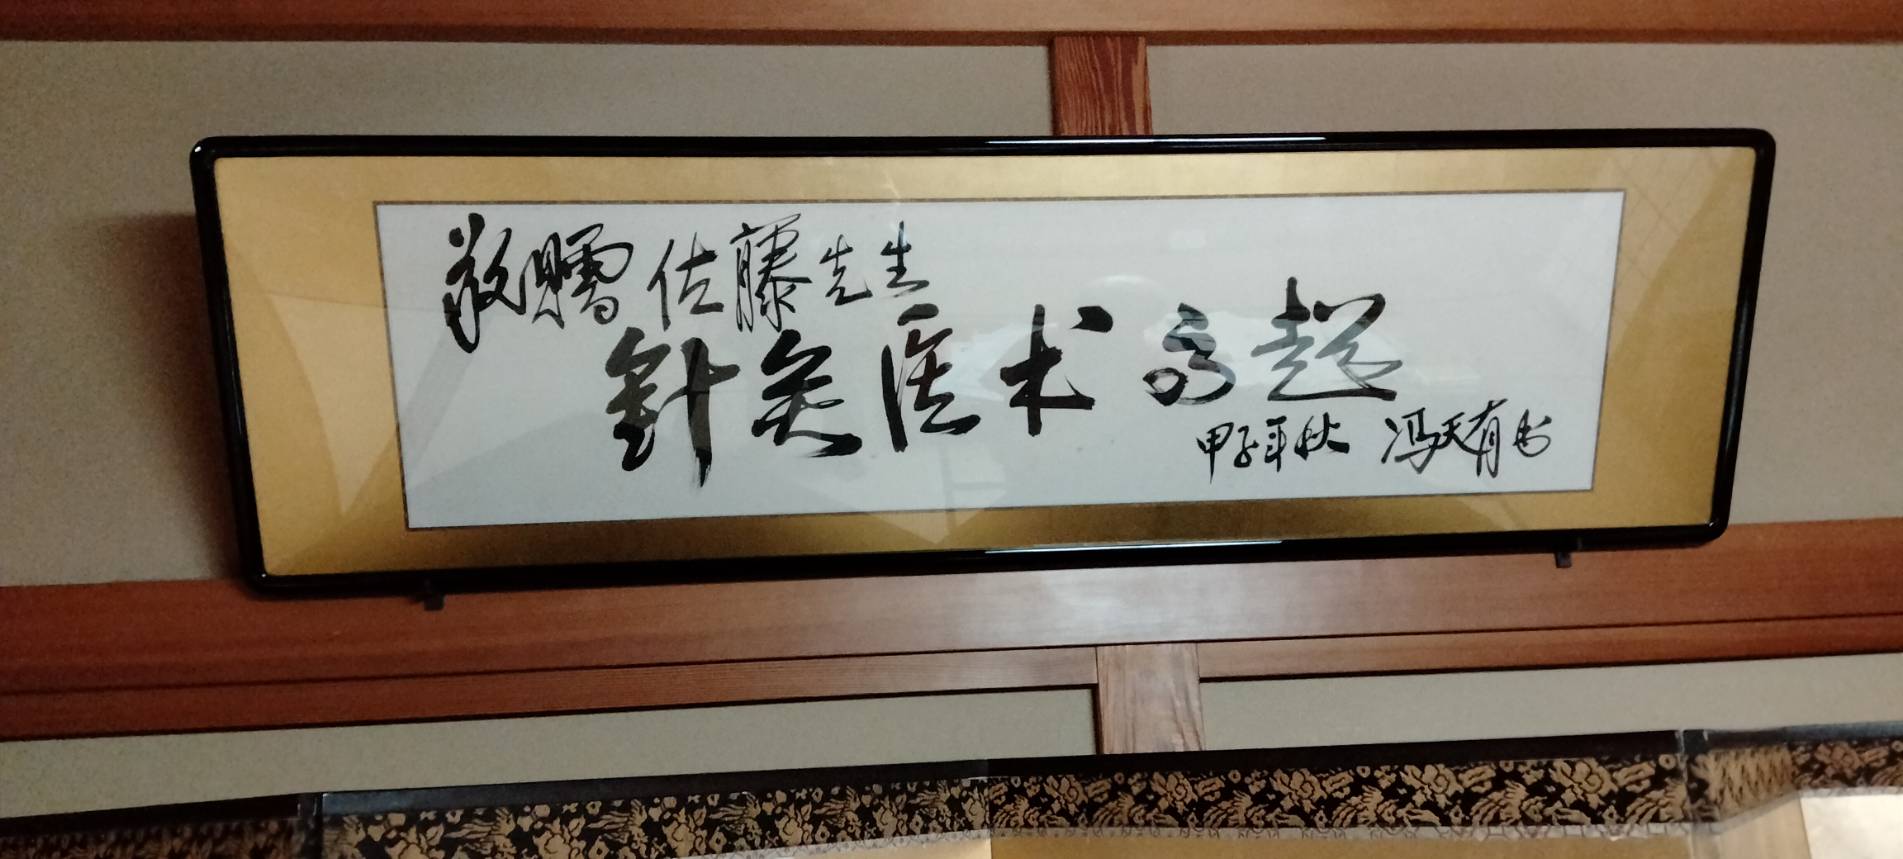 敬赠 佐藤先生
針灸医术高超
甲子年秋 冯天有书